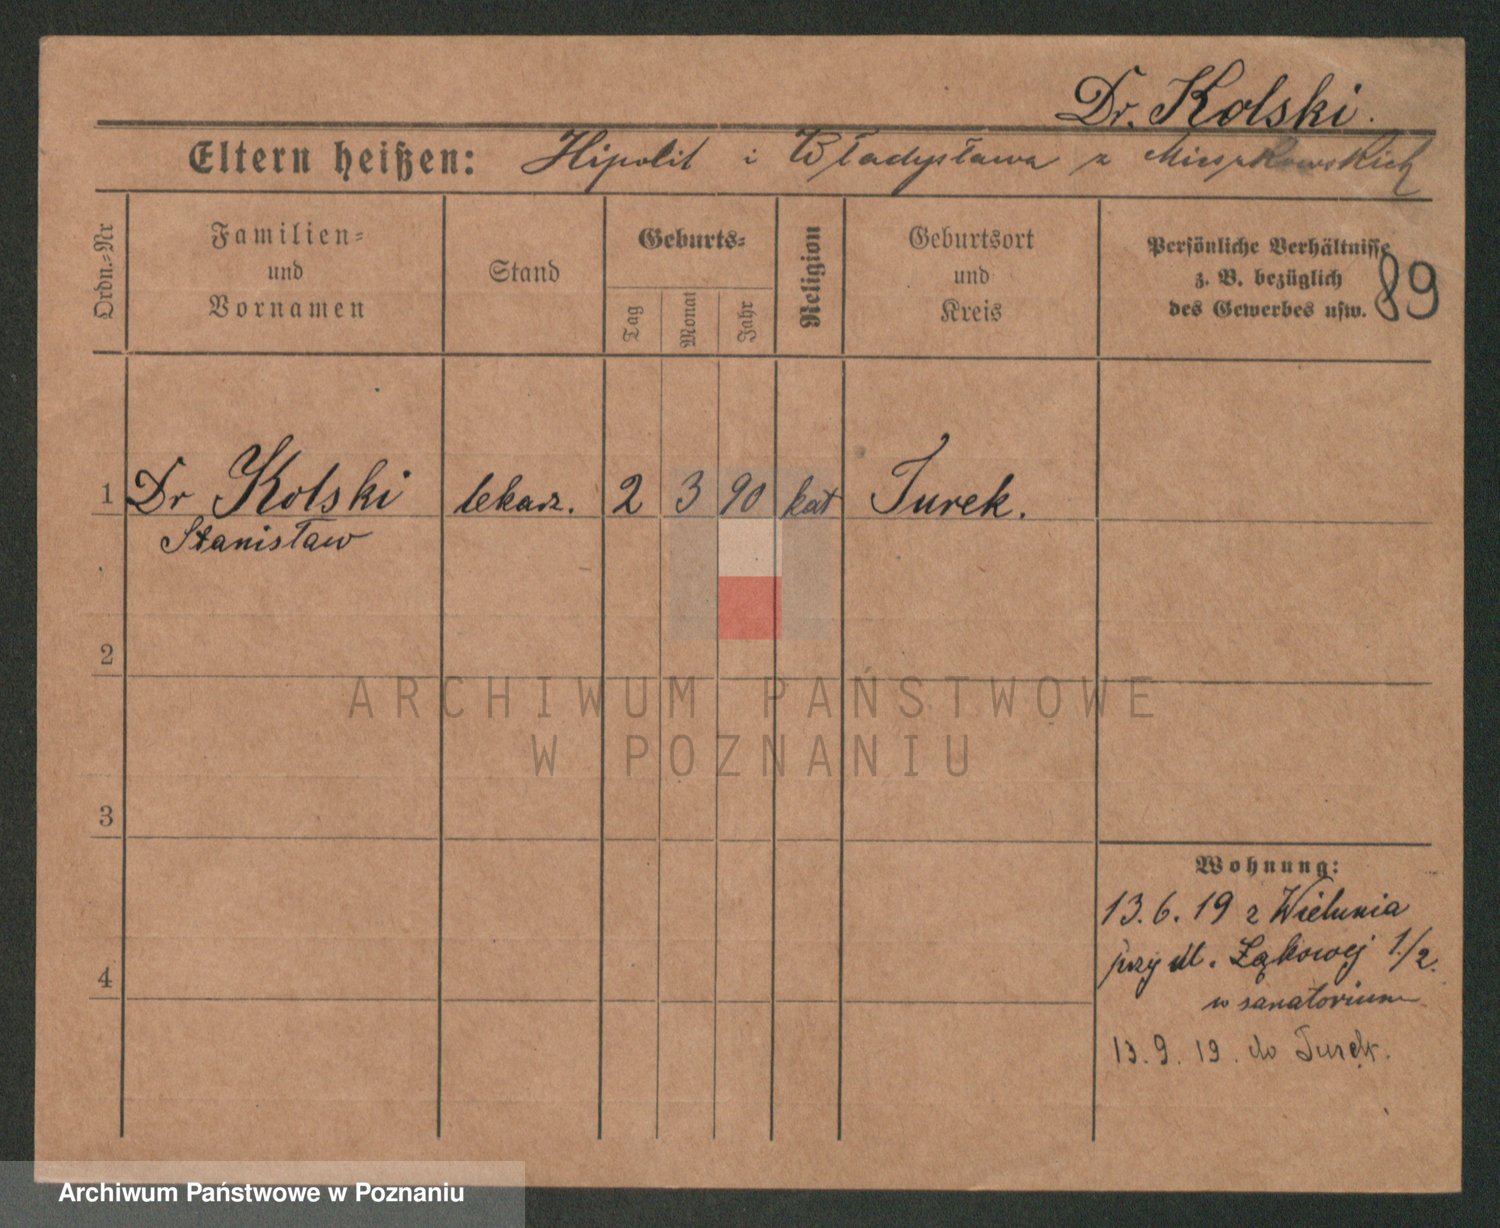 Dr. Kolski.
Eltern heißen: Hipolit i Władysława z
Ordn.-Nr
Familien-
und
Vornamen
Stand
Geburts-
Tag
Monat
Jahr
Religion
Geburtsort
und
Kreis
Persönliche Verhältnisse
z. B. bezüglich
des Gewerbes usw.
89
1 Dr Kolski lekarz. 2 3 90 kat Turek.
Stanisław
2
ARCHIWUM PAŃSTWOWE
W POZNANIU
3
Wohnung:
13.6.19 z Wielunia
przy ul. Łąkowej 1/2.
4
w sanatorium
13.9.19. do Turek.
Archiwum Państwowe w Poznaniu